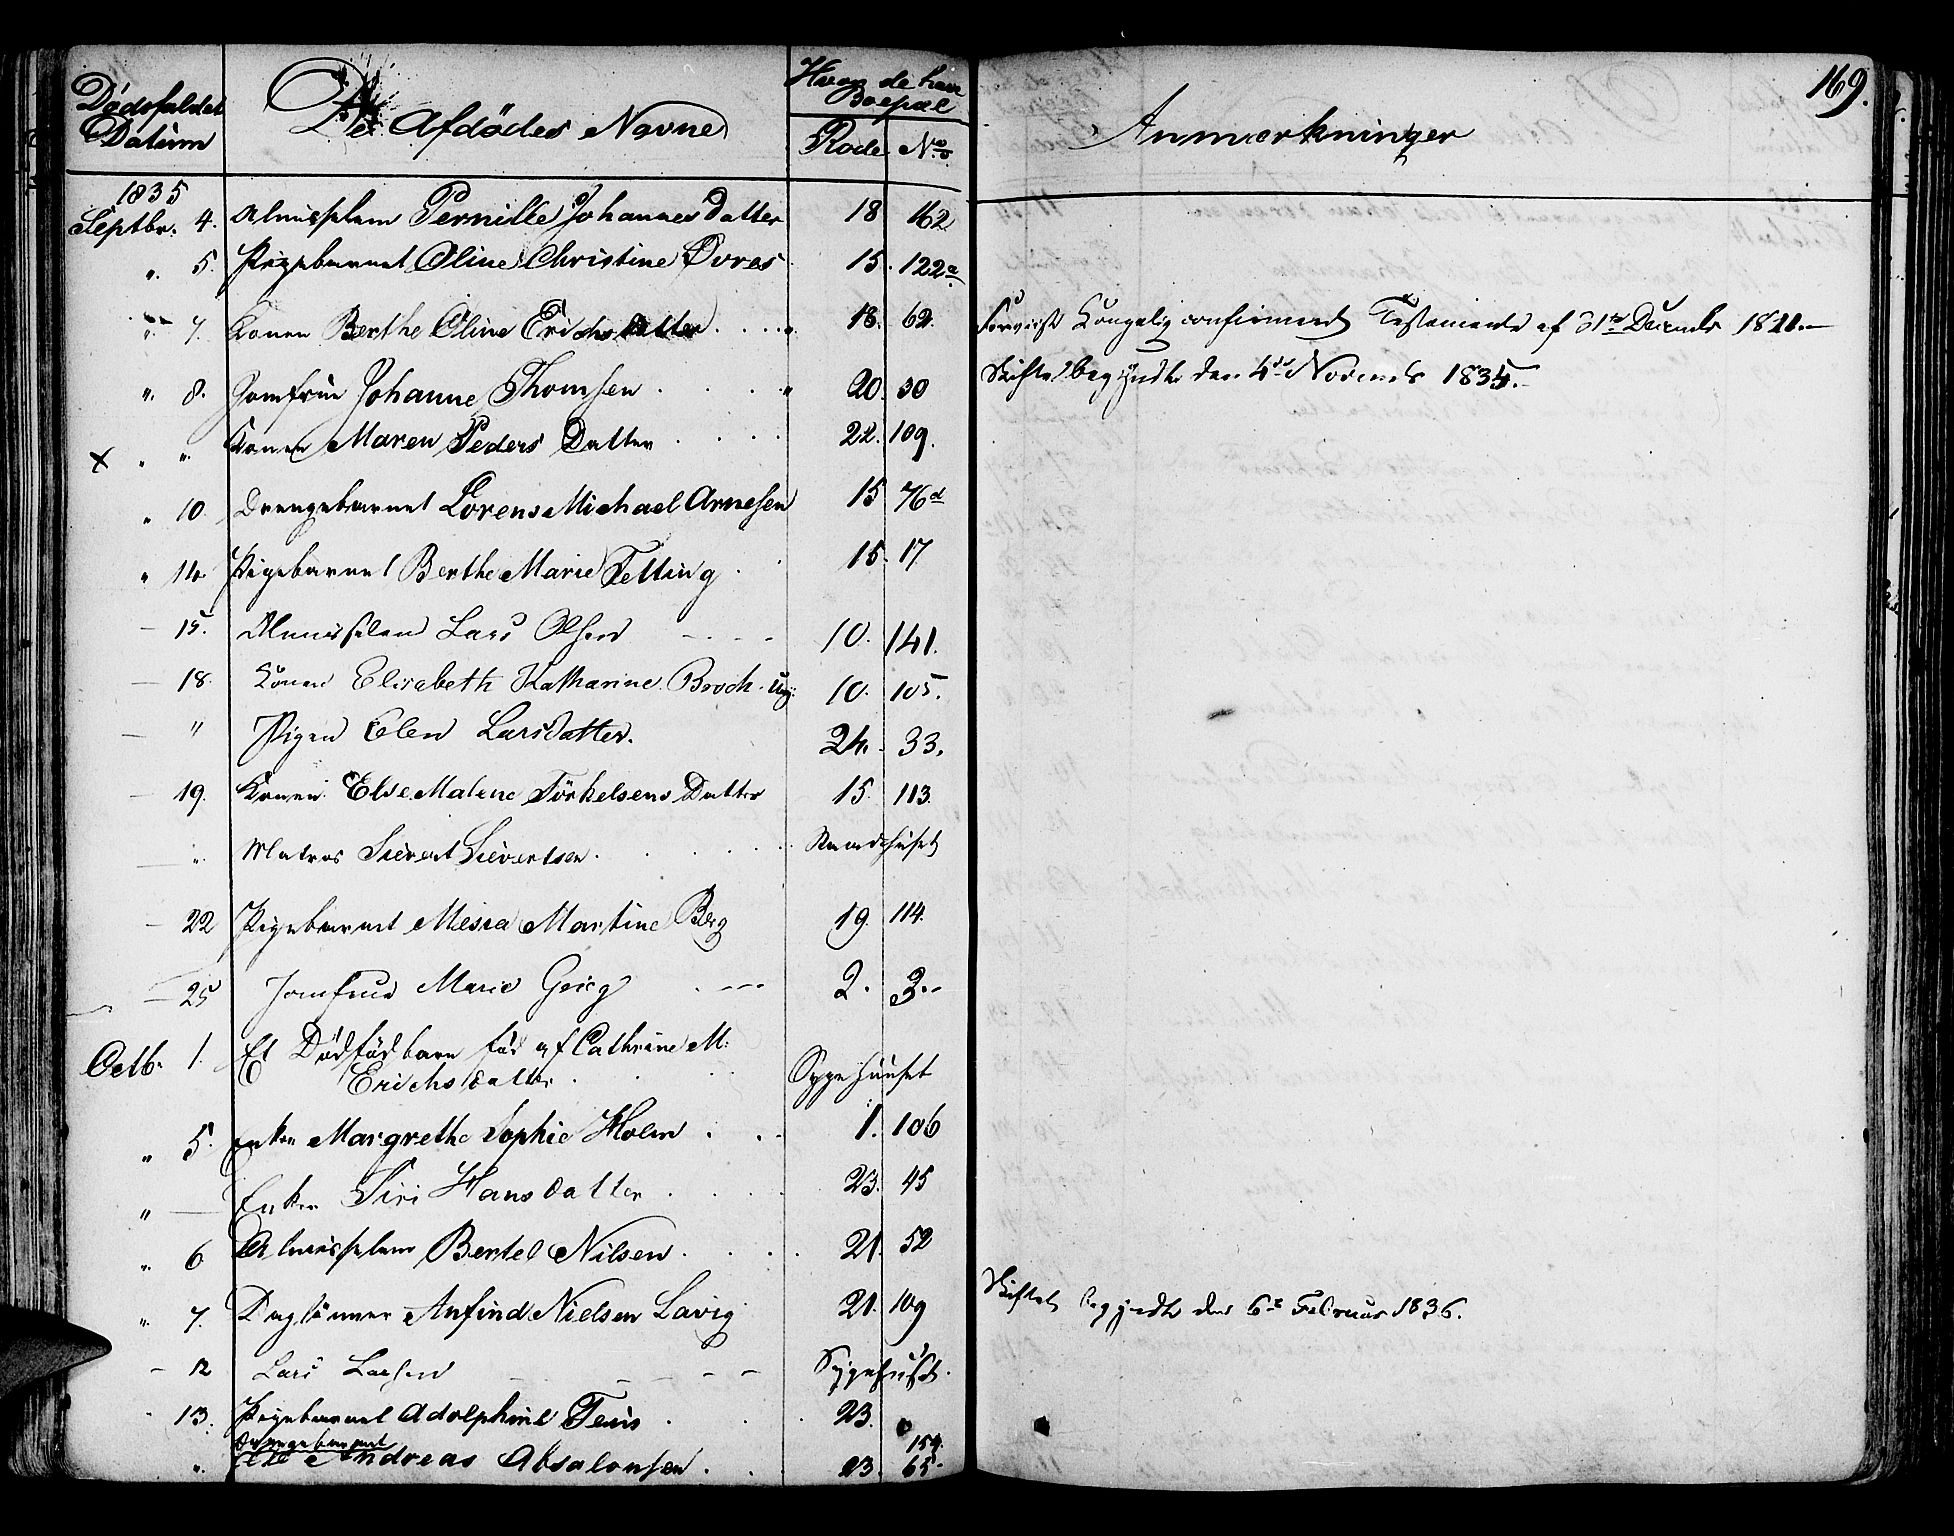 169.
Dødsfaldet Datum
De Afdødes Navne
Hvor de have Boepæl
Rode No
Anmærkninger
1835
Septbr. 4. Almisselem Pernille Johannes Datter 18 162
" 5. Pigebarnet Oline Christine Øvres 15. 122a
" 7. Konen Berthe Oline Erichsdatter 18. 62. Kongelig confirmeret Testamente af 31te Decembr
" 8. Jomfrue Johanne Thomsen 20. 30 Skiftet begyndte den 4de Novembr 1835.
x " " Konen Maren Peders Datter 22. 109.
" 10. Drengebarnet Lorens Michael Arnesen 15 76d
" 14. Pigebarnet Berthe Marie Fetting 15. 17
— 15. Almisselem Lars Olsen 10. 141.
— 18. Konen Elisabeth Katharine Broch 10. 105.
— " Pigen Elen Larsdatter. 24. 33.
— 19. Konen Else Malene Törkelsens Datter 15. 113.
— " Matros Sievert Sievertsen Raadhuset
— 22 Pigebarnet Mesia Martine Berg 19. 114.
— 25 Jomfrue Marie Grieg 2. 3.
Octb. 1. Et Dødfødbarn fød af Cathrine M:
Erichsdatter Sygehuuset
" 5. Enken Margrethe Sophie Holm 1. 106
" — Enken Siri Hansdatter 23. 45
" 6 Almisselem Bertel Nilsen 21. 52
" 7. Daglönner Anfind Nielsen Lavig 21. 109 Skiftet begyndte den 6te Februar 1836.
— 12 Lars Larsen Sygehuset.
13. Pigebarnet Adolphine Teuis 23.
Drengebarnet 154.
" Ole Andreas Absalonsen 23. 65